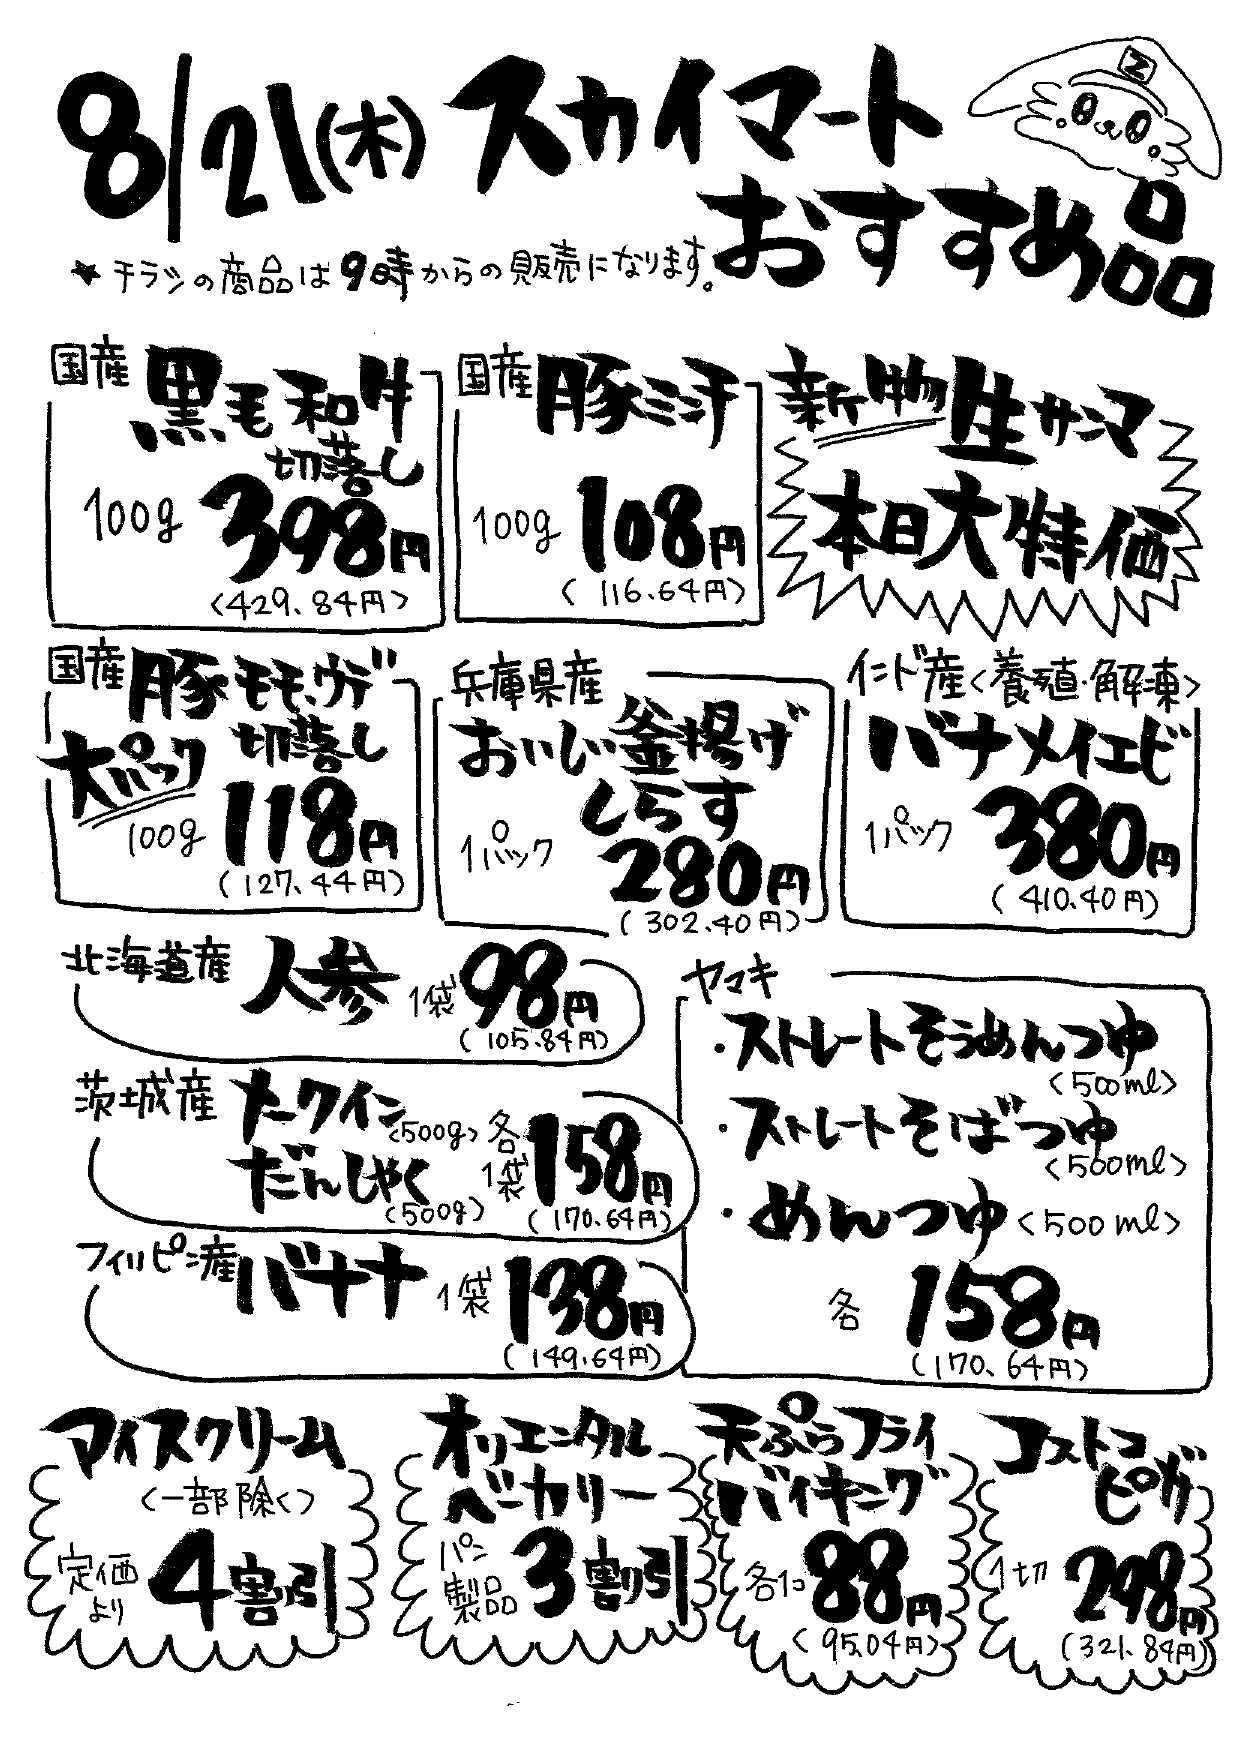 8/21(木) スカイマート
おすすめ品
★チラシの商品は9時からの販売になります。
国産 黒毛和牛
切落し
100g 398円
(429.84円)
国産 豚ミンチ
100g 108円
(116.64円)
新物 生サンマ
本日大特価
国産 豚モモ、ウデ
切落し
大パック
100g 118円
(127.44円)
兵庫県産
おいしい釜揚げ
しらす
1パック 280円
(302.40円)
インド産<養殖・解凍>
バナメイエビ
1パック 380円
(410.40円)
北海道産 人参 1袋 98円
(105.84円)
茨城産 メークイン
<500g>
だんしゃく
<500g>
各1袋 158円
(170.64円)
フィリピン産 バナナ 1袋 138円
(149.64円)
ヤマキ
・ストレートそうめんつゆ
<500ml>
・ストレートそばつゆ
<500ml>
・めんつゆ<500ml>
各 158円
(170.64円)
アイスクリーム
<一部除く>
定価より 4割引
オリエンタル
ベーカリー
パン製品 3割引
天ぷらフライ
バイキング
各1コ 88円
(95.04円)
コストコ
ピザ
1切 298円
(321.84円)
N